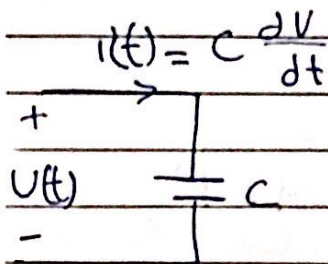 i(t) = C dV/dt
+
U(t) C
-